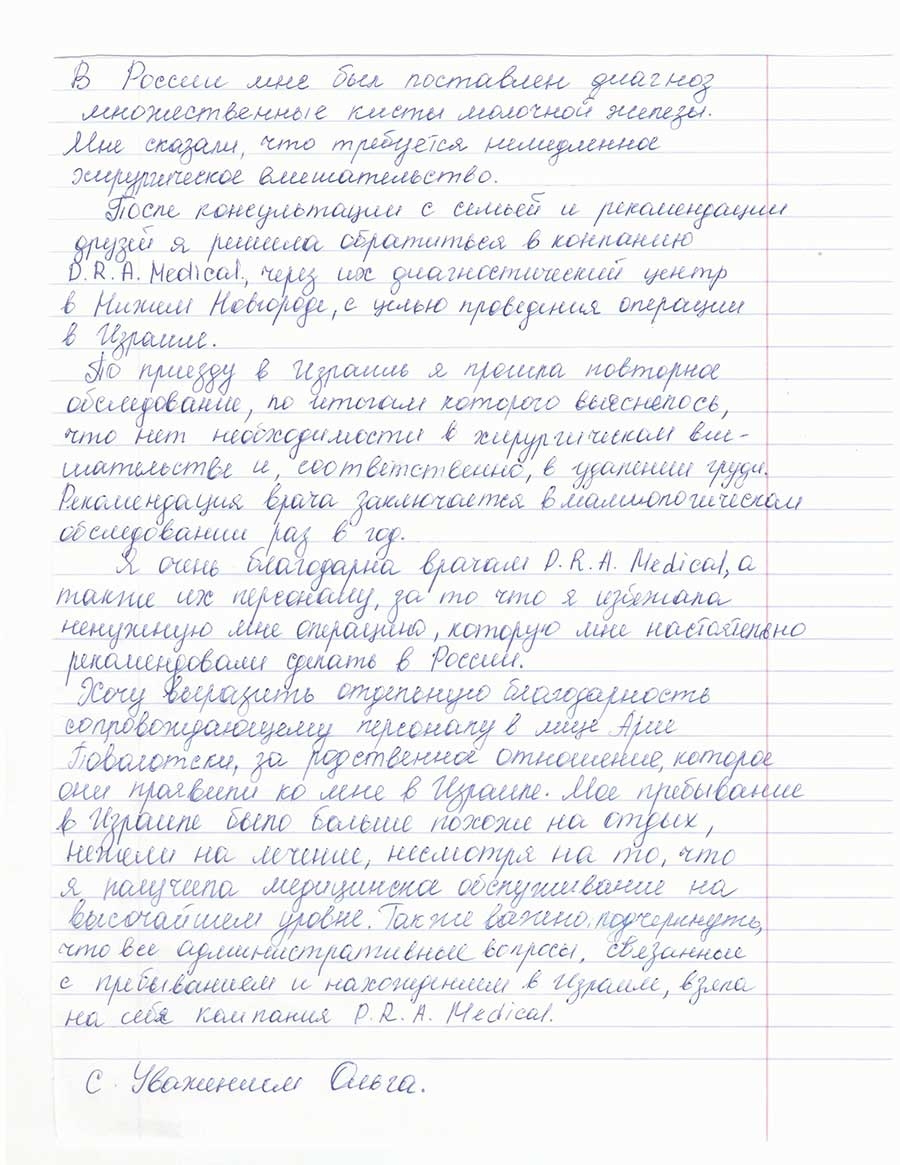 В России мне был поставлен диагноз
множественные кисты молочной железы.
Мне сказали, что требуется немедленное
хирургическое вмешательство.
После консультации с семьей и рекомендации
друзей я решила обратиться в компанию
D.R.A. Medical, через их диагностический центр
в Нижнем Новгороде, с целью проведения операции
в Израиле.
По приезду в Израиль я прошла повторное
обследование, по итогам которого выяснелось,
что нет необходимости в хирургическом вме-
шательстве и, соответственно, в удалении груди.
Рекомендация врача заключается в маммологическом
обследовании раз в год.
Я очень благодарна врачам D.R.A. Medical, а
также их персоналу, за то что я избежала
ненужную мне операцию, которую мне настоятельно
рекомендовали сделать в России.
Хочу выразить отдельную благодарность
сопровождающему персоналу в лице Арие
Поваготски, за родственное отношение, которое
они праявили ко мне в Израиле. Мое пребывание
в Израиле было больше похоже на отдых,
нежели на лечение, несмотря на то, что
я получила медицинское обслуживание на
высочайшем уровне. Также важно подчеркнуть,
что все административные вопросы, связанные
с пребыванием и нахождением в Израиле, взяла
на себя компания D.R.A. Medical.
С Уважением Ольга.